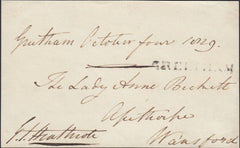 Gretham October four 1829.
GRETHAM
The Lady Anne Beckett
Apethorpe
Wansford